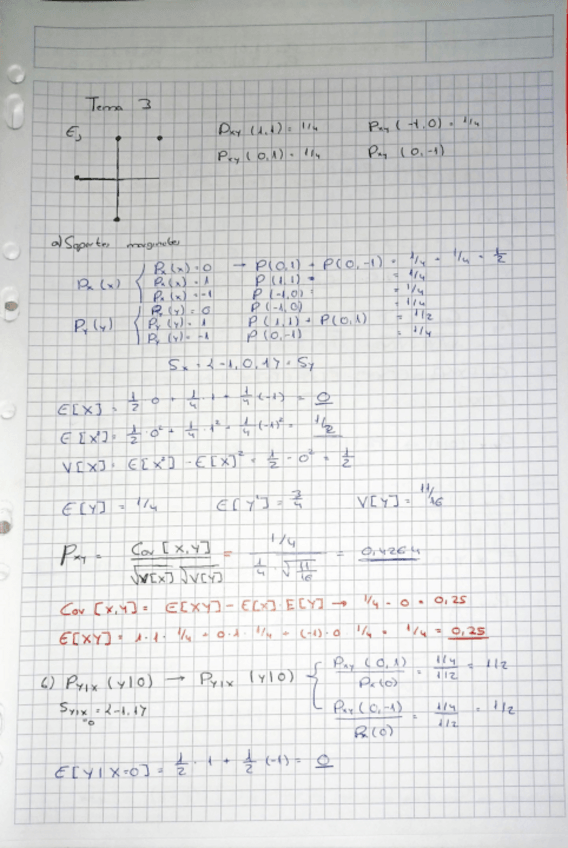 Tema 3
E3
Pxy (1,1) = 1/4   Pxy (-1,0) = 1/4
Pxy (0,1) = 1/4   Pxy (0,-1)
a) Soportes marginales
Px (x) { Px (x) = 0 → P(0,1) + P(0,-1) = 1/4 + 1/4 = 1/2
Px (x) = 1   P(1,1) = 1/4
Px (x) = -1   P(-1,0) = 1/4
Py (y) { Py (y) = 0   P(-1,0) = 1/4
Py (y) = 1   P(1,1) + P(0,1) = 1/2
Py (y) = -1   P(0,-1) = 1/4
Sx = {-1,0,1} = Sy
E[X] = 1/2 · 0 + 1/4 · 1 + 1/4 (-1) = 0
E[X²] = 1/2 · 0² + 1/4 · 1² + 1/4 (-1)² = 1/2
V[X] = E[X²] - E[X]² = 1/2 - 0² = 1/2
E[Y] = 1/4   E[Y²] = 3/4   V[Y] = 11/16
Pxy = Cov [X,Y] / √V[X] √V[Y] = 1/4 / 1/4 · √11/16 = 0,4264
Cov [X,Y] = E[XY] - E[X] · E[Y] → 1/4 - 0 = 0,25
E[XY] = 1·1·1/4 + 0·1·1/4 + (-1)·0 1/4 = 1/4 = 0,25
b) PY|X (y|0) → PY|X (y|0) { Pxy (0,1) / Px(0) = 1/4 / 1/2 = 1/2
SY|X=0 = {-1,1}   Pxy (0,-1) / Px(0) = 1/4 / 1/2 = 1/2
E[Y|X=0] = 1/2 · 1 + 1/2 (-1) = 0